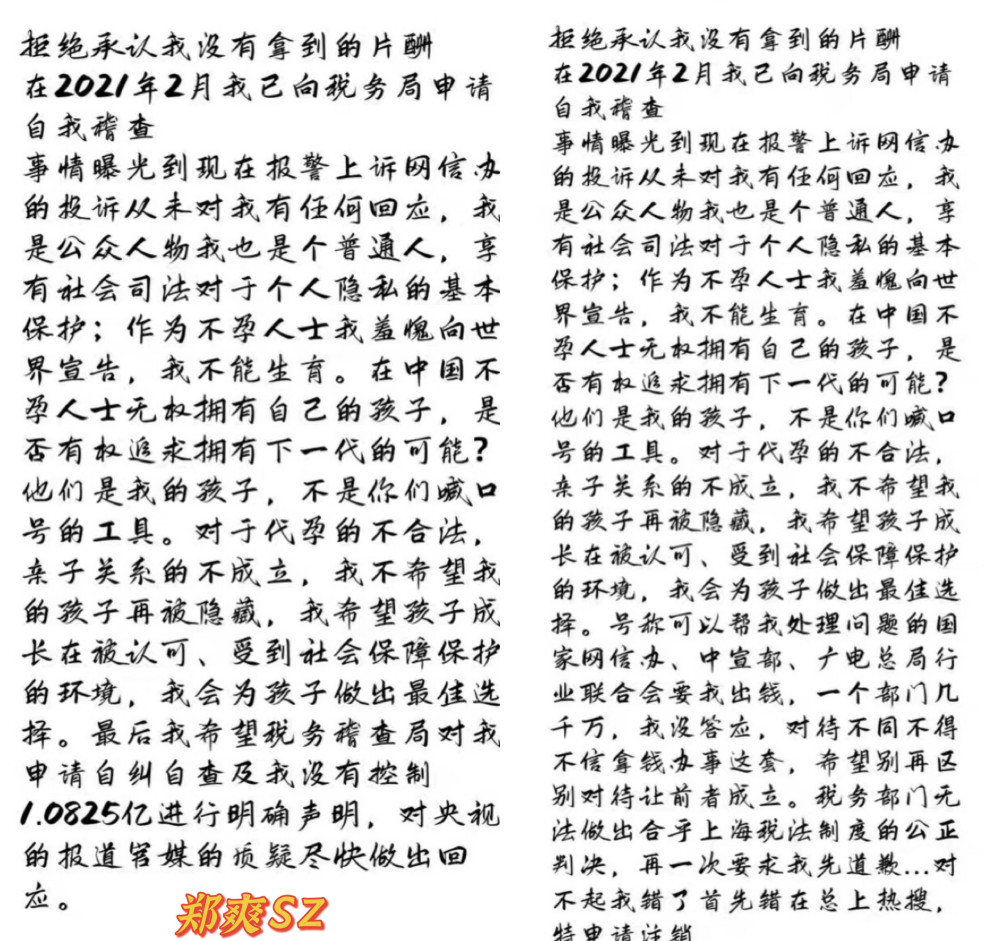 拒绝承认我没有拿到的片酬
在2021年2月我已向税务局申请
自我稽查
事情曝光到现在报警上诉网信办
的投诉从未对我有任何回应，我
是公众人物我也是个普通人，享
有社会司法对于个人隐私的基本
保护；作为不孕人士我羞愧向世
界宣告，我不能生育。在中国不
孕人士无权拥有自己的孩子，是
否有权追求拥有下一代的可能？
他们是我的孩子，不是你们喊口
号的工具。对于代孕的不合法，
亲子关系的不成立，我不希望我
的孩子再被隐藏，我希望孩子成
长在被认可、受到社会保障保护
的环境，我会为孩子做出最佳选
择。最后我希望税务稽查局对我
申请自纠自查及我没有控制
1.0825亿进行明确声明，对央视
的报道官媒的质疑尽快做出回
应。
郑爽SZ
拒绝承认我没有拿到的片酬
在2021年2月我已向税务局申请
自我稽查
事情曝光到现在报警上诉网信办
的投诉从未对我有任何回应，我
是公众人物我也是个普通人，享
有社会司法对于个人隐私的基本
保护；作为不孕人士我羞愧向世
界宣告，我不能生育。在中国不
孕人士无权拥有自己的孩子，是
否有权追求拥有下一代的可能？
他们是我的孩子，不是你们喊口
号的工具。对于代孕的不合法，
亲子关系的不成立，我不希望我
的孩子再被隐藏，我希望孩子成
长在被认可、受到社会保障保护
的环境，我会为孩子做出最佳选
择。号称可以帮我处理问题的国
家网信办、中宣部、广电总局行
业联合会要我出钱，一个部门几
千万，我没答应，对待不同不得
不信拿钱办事这套，希望别再区
别对待让前者成立。税务部门无
法做出合乎上海税法制度的公正
判决，再一次要求我先道歉...对
不起我错了首先错在总上热搜，
特申请注销